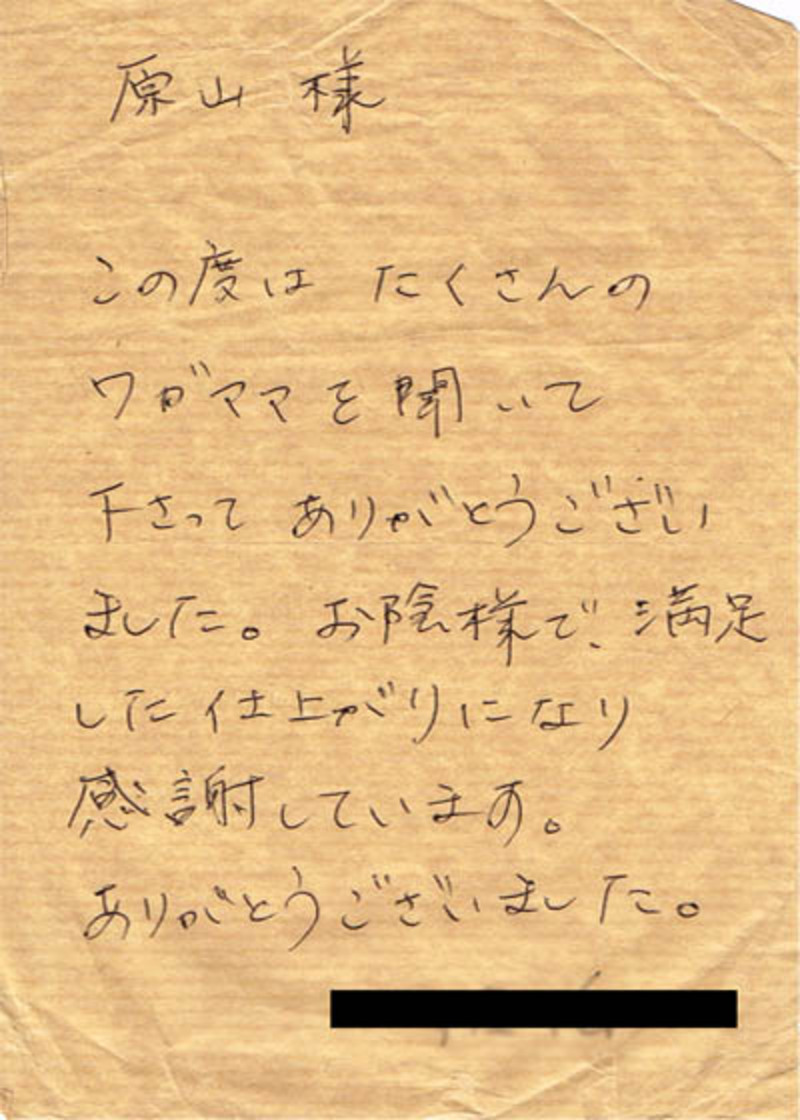 原山 様
この度は たくさんの
ワガママを聞いて
下さって ありがとうござい
ました。お陰様で、満足
した仕上がりになり
感謝しています。
ありがとうございました。